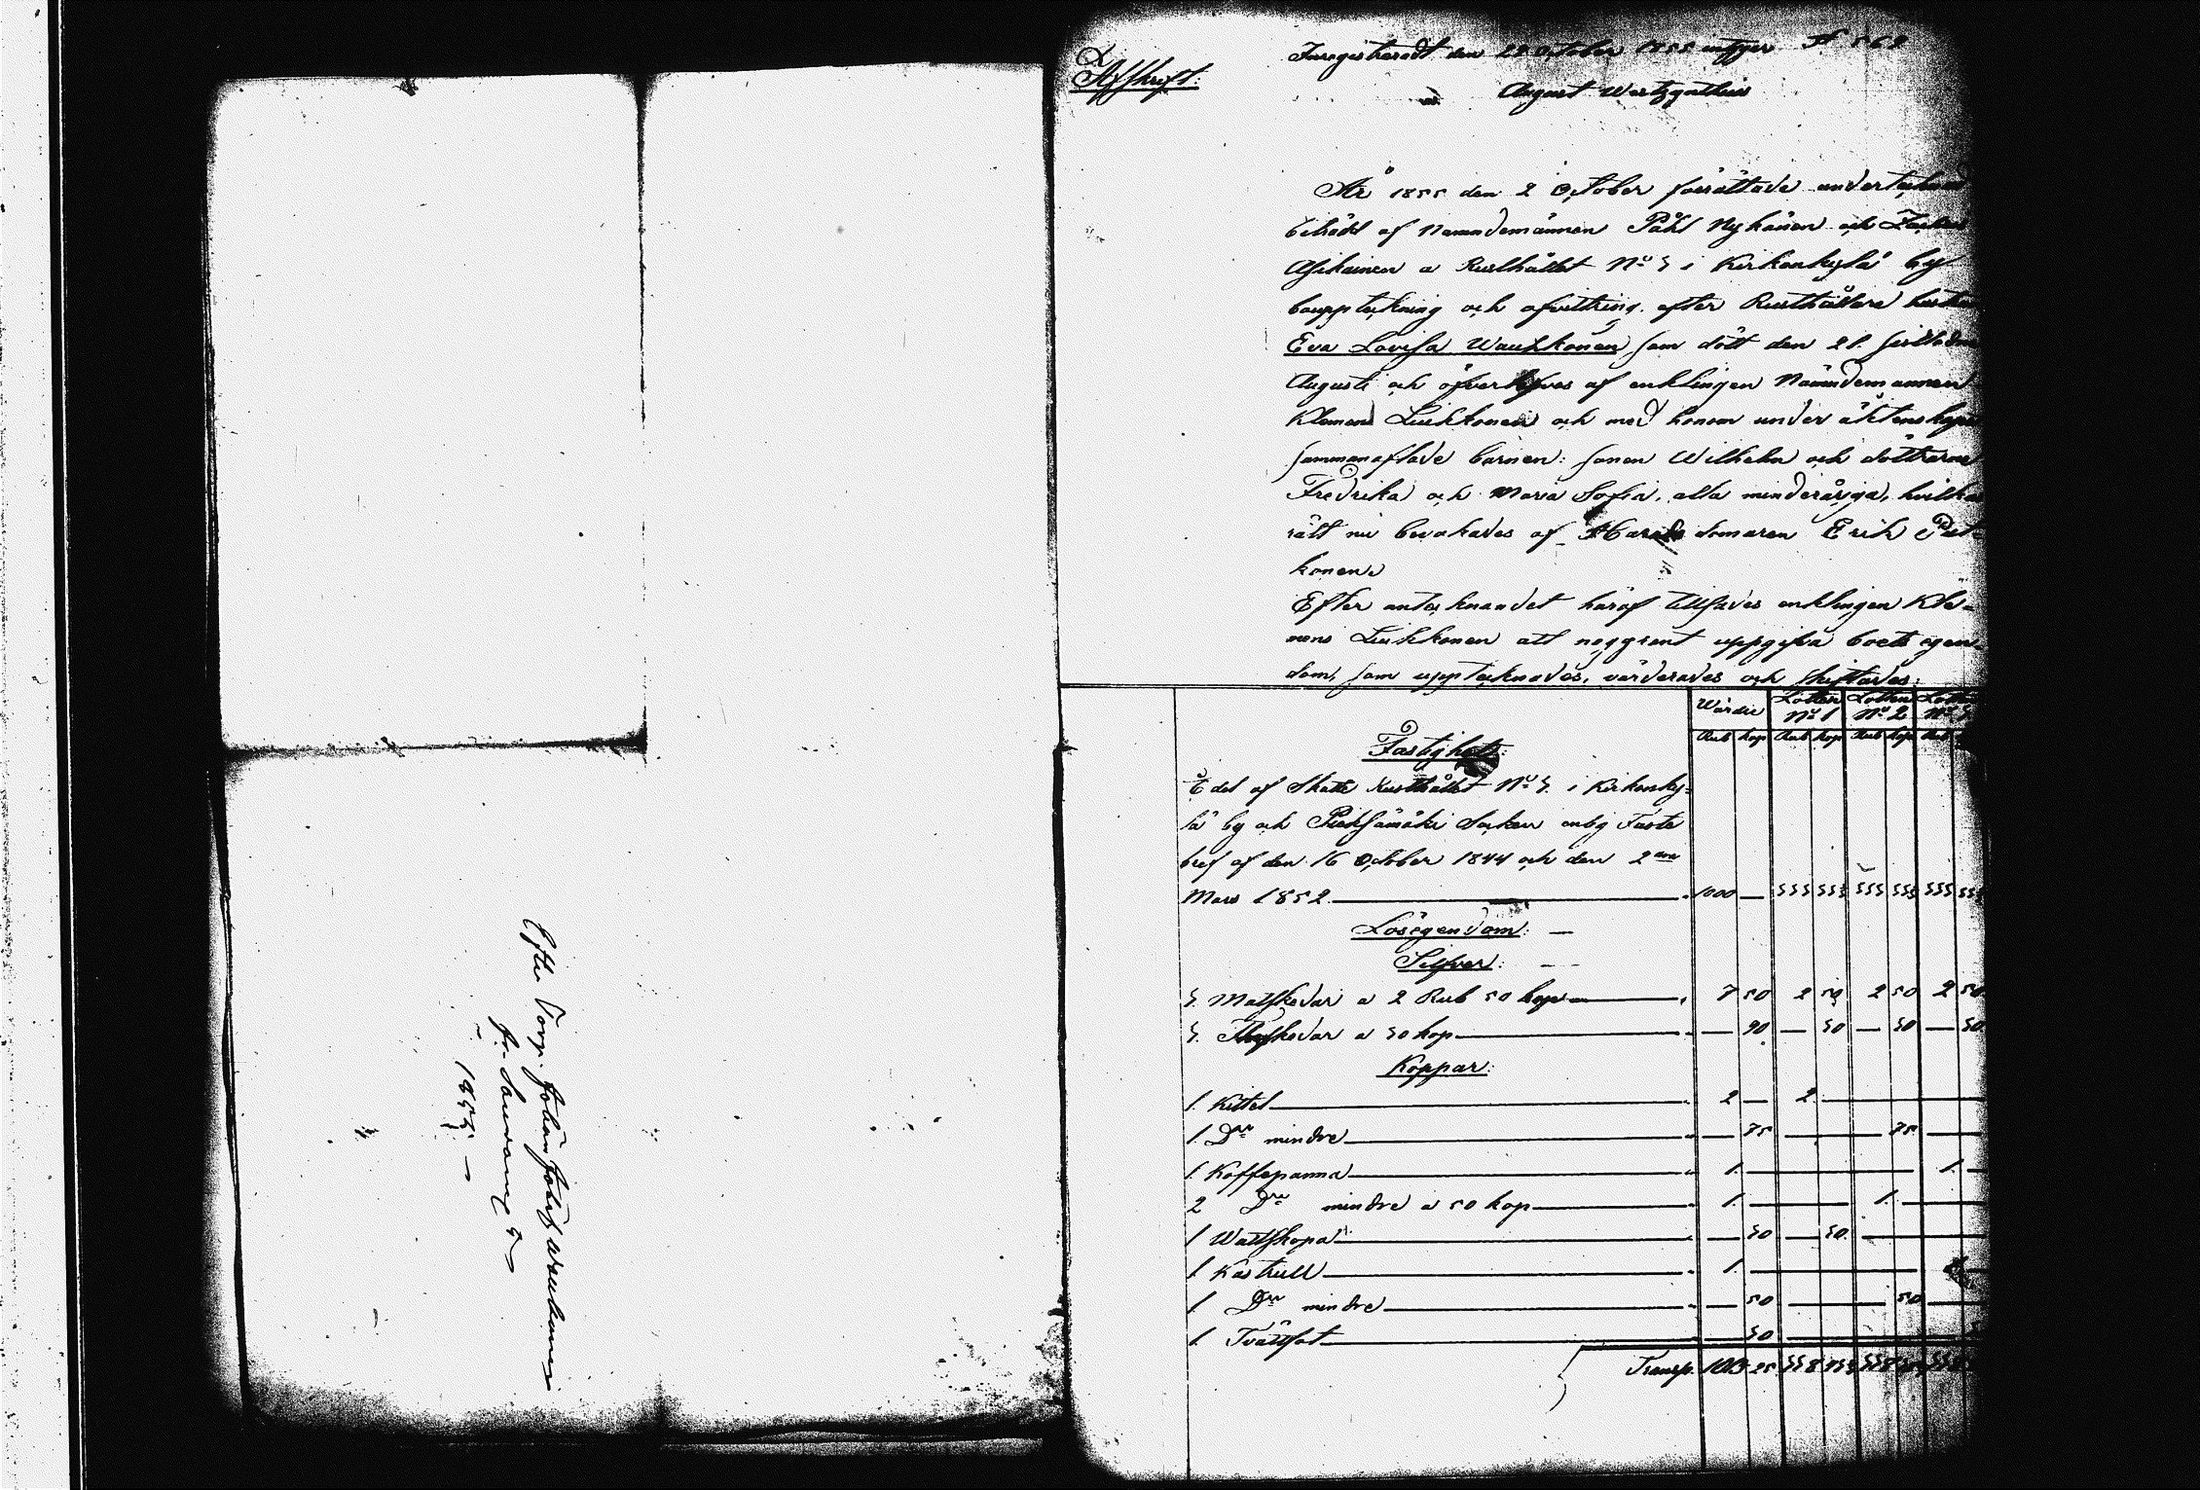 Efter Torp. Johan Josef
fr. Sauvamäki
1855.
Afskrift.
Inregistreradt den 22 October 1855 intygar № 569
August
År 1855 den 2 October förrättade undertecknad
biträdd af Nämndemännen Påhl Nykänen och
Asikainen a Rusthållet No 3 i Kirkonkylä by
bouppteckning och afvittring efter Rusthållare hustrun
Eva Lovisa Wauhkonen som dött den 21. sistledne
Augusti och öfverlefves af enklingen Nämndemannen
Klemens Liukkonen och med honom under äktenskapet
sammanaflade barnen: sonen Wilhelm och döttrarne
Fredrika och Maria Sofia, alla minderåriga, hvilkas
rätt nu bevakades af Häradsdomaren Erik
konen.
Efter antecknandet häraf tillsades enklingen Kle-
mens Liukkonen att noggrant uppgifva boets egen-
dom, som upptecknades, värderades och skiftades:
Wärde Lotten No 1 Lotten No 2 Lotten No 3
Rub kop Rub kop Rub kop Rub
Fastighet:
del af Skatte Rusthållet No 3. i Kirkonky-
lä by och Pieksämäki Socken enligt Faste
bref af den 16 October 1844 och den 2
Mars 1852 1000 — 333 33⅓ 333 33⅓ 333 33⅓
Lösegendom: —
Silfver: —
3. Matskedar a 2 Rub 50 kop 7 50 2 50 2 50 2 50
3. Theskedar a 30 kop — 90 — 30 — 30 — 30
Koppar:
1. Kittel 2 — 2
1. D:o mindre — 75 75
1. Kaffepanna 1. 1.
2 D:o mindre a 50 kop 1. 1.
1 Wattskopa — 30 — 30.
1. Kastrull 1. 1
1. D:o mindre — 50 50
1. Tvättfat — 30
Transp.